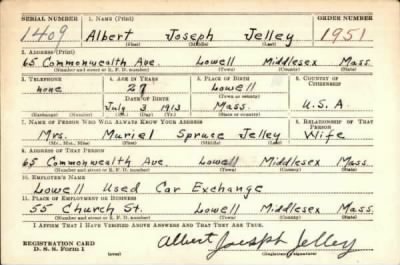 SERIAL NUMBER 1. NAME (Print) ORDER NUMBER
1409 Albert Joseph Jelley 1951
(First) (Middle) (Last)
2. ADDRESS (Print)
65 Commonwealth Ave. Lowell Middlesex Mass.
(Number and street or R. F. D. number) (Town) (County) (State)
3. TELEPHONE 4. AGE IN YEARS 5. PLACE OF BIRTH 6. COUNTRY OF CITIZENSHIP
none 27 Lowell
DATE OF BIRTH (Town or county)
July 3 1913 Mass. U.S.A.
(Exchange) (Number) (Mo.) (Day) (Yr.) (State or country)
7. NAME OF PERSON WHO WILL ALWAYS KNOW YOUR ADDRESS 8. RELATIONSHIP OF THAT PERSON
Mrs. Murial Spruce Jelley Wife
(Mr., Mrs., Miss) (First) (Middle) (Last)
9. ADDRESS OF THAT PERSON
65 Commonwealth Ave. Lowell Middlesex Mass.
(Number and street or R. F. D. number) (Town) (County) (State)
10. EMPLOYER'S NAME
Lowell Used Car Exchange
11. PLACE OF EMPLOYMENT OR BUSINESS
55 Church St. Lowell Middlesex Mass.
(Number and street or R. F. D. number) (Town) (County) (State)
I AFFIRM THAT I HAVE VERIFIED ABOVE ANSWERS AND THAT THEY ARE TRUE.
Albert Joseph Jelley
REGISTRATION CARD
D. S. S. Form 1 (over) (Registrant's signature)